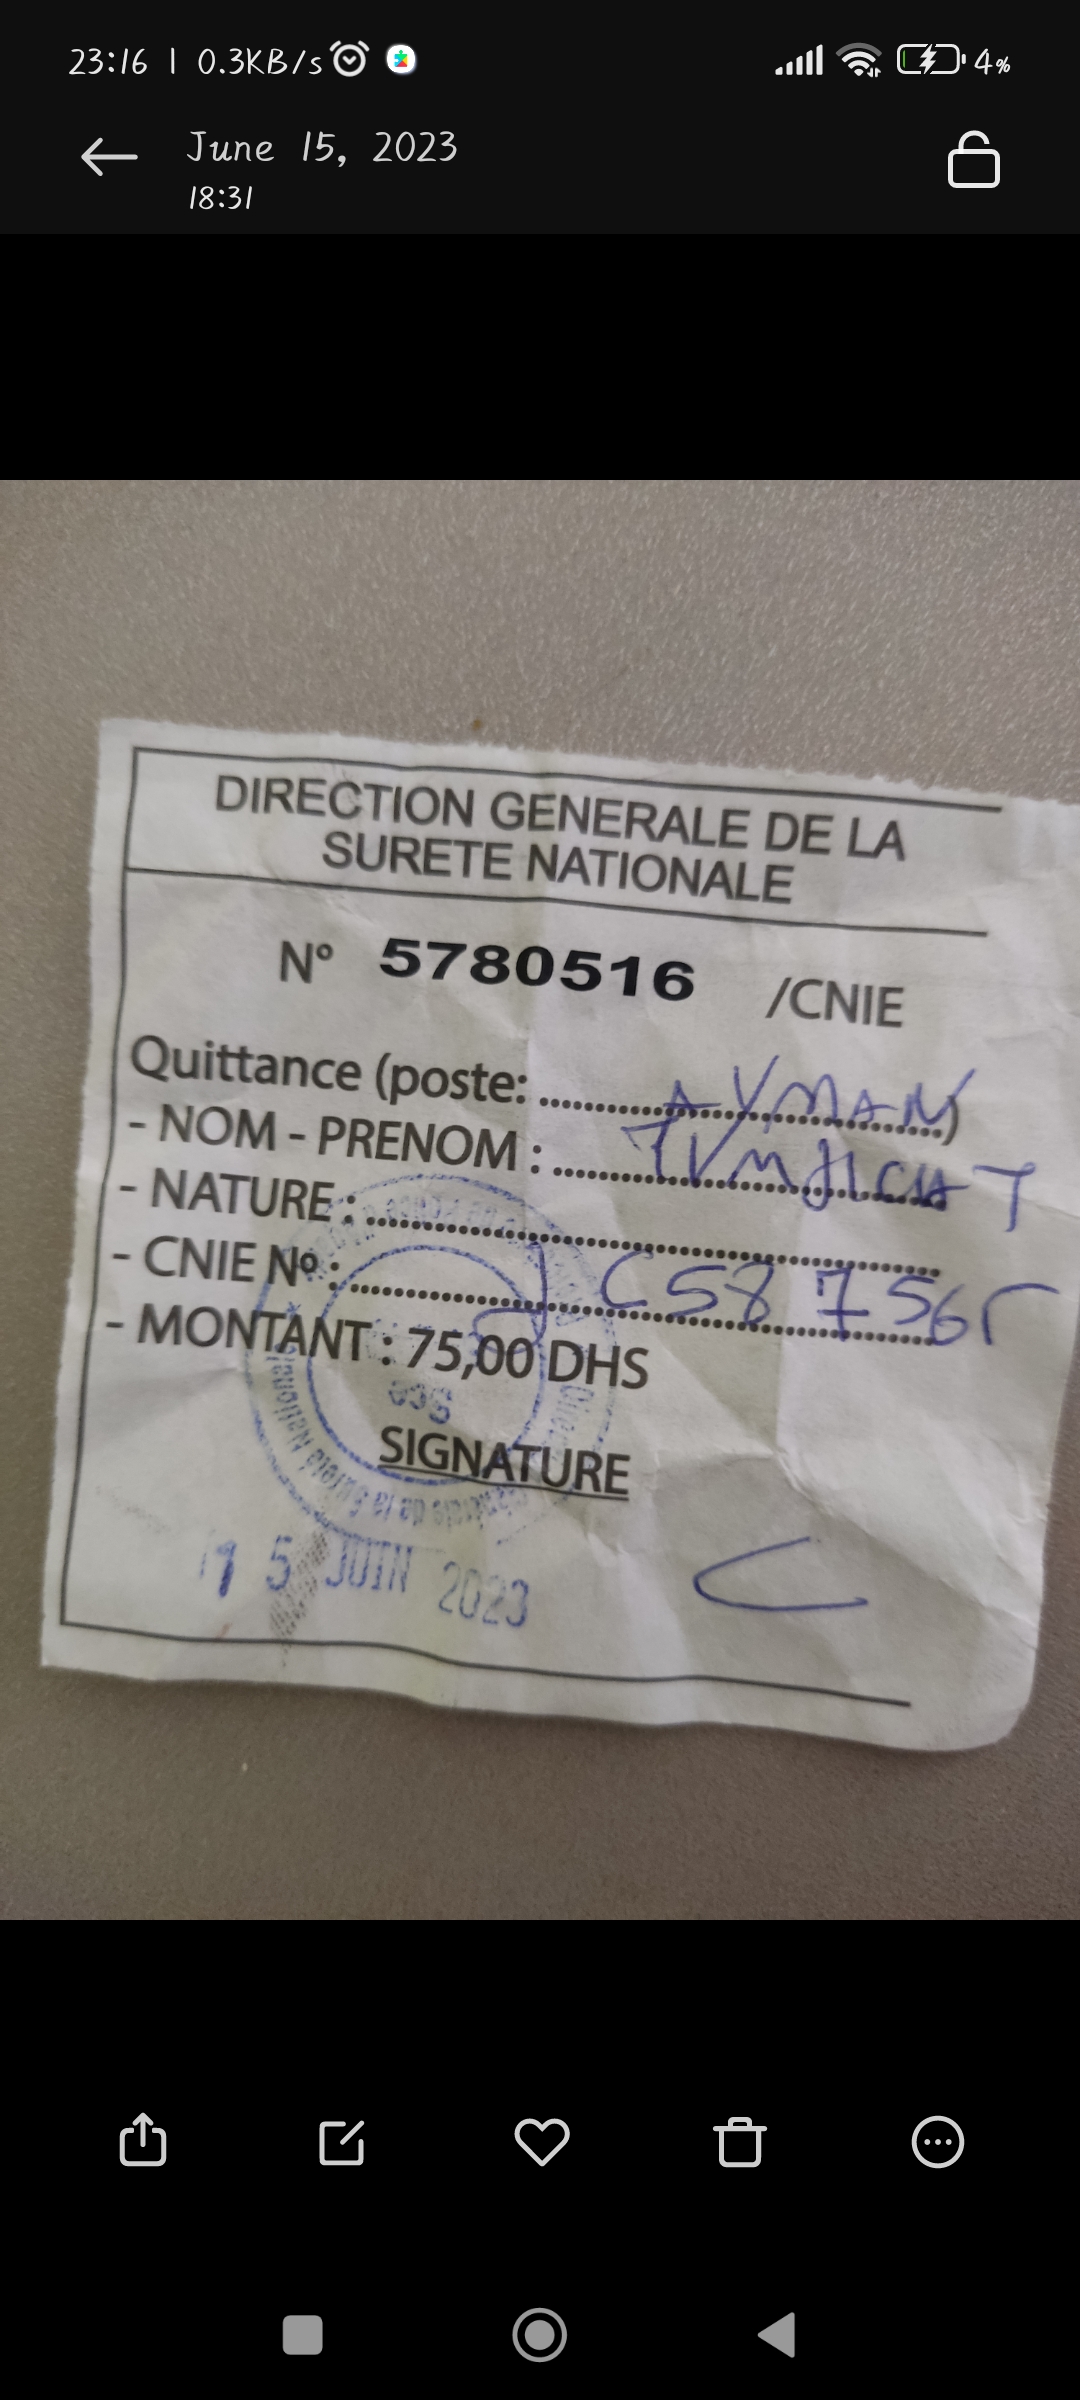 23:16 | 0.3KB/s
4%
June 15, 2023
18:31
DIRECTION GENERALE DE LA
SURETE NATIONALE
Nº 5780516 /CNIE
Quittance (poste: .................... AYMAN)
- NOM - PRENOM :
- NATURE :
- CNIE Nº :
- MONTANT : 75,00 DHS
SIGNATURE
15 JUIN 2023